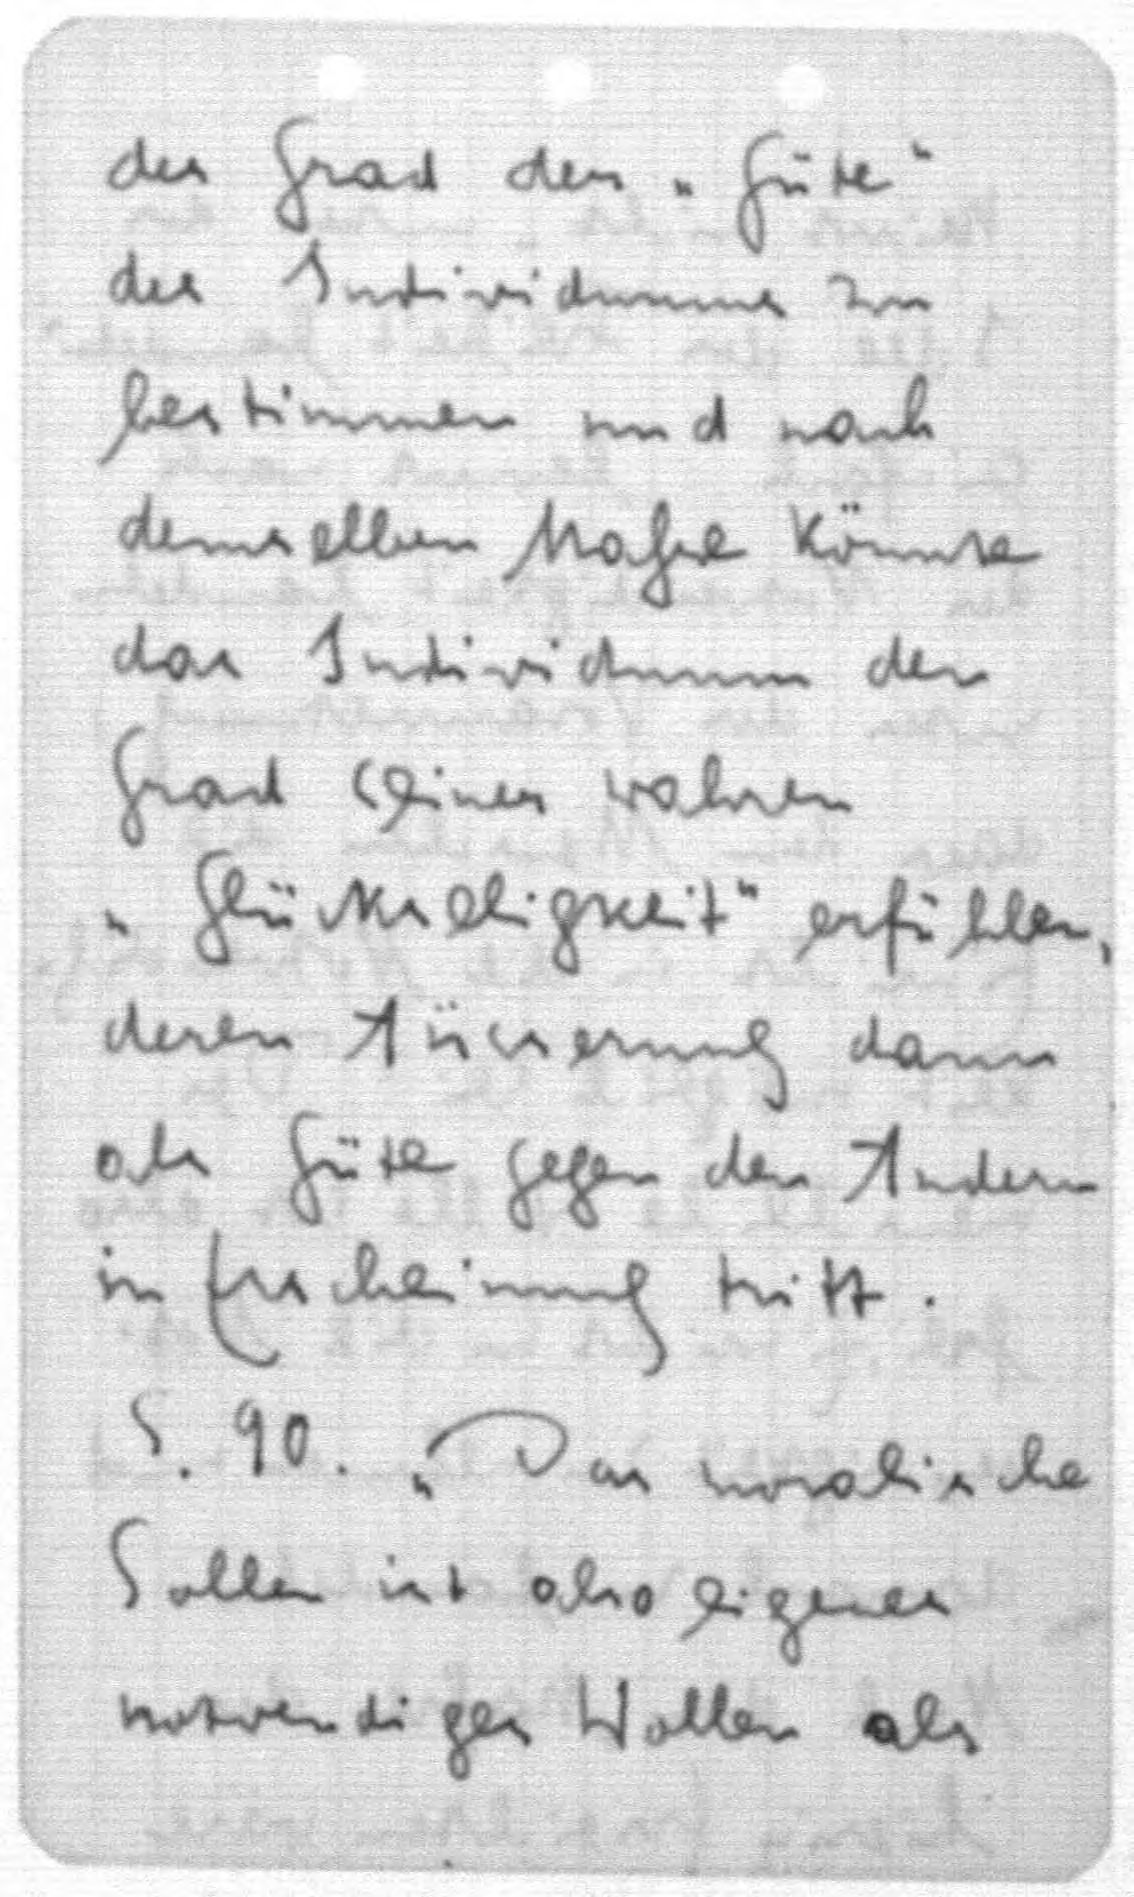 der Grad der „Güte“
des Individuums zu
bestimmen und nach
demselben Maße könnte
das Individuum den
Grad seiner wahren
„Glückseligkeit“ erfühlen,
deren Äusserung dann
als Güte gegen den Andern
in Erscheinung tritt.
S. 90. „Das moralische
Sollen ist also eigenes
notwendiges Wollen als